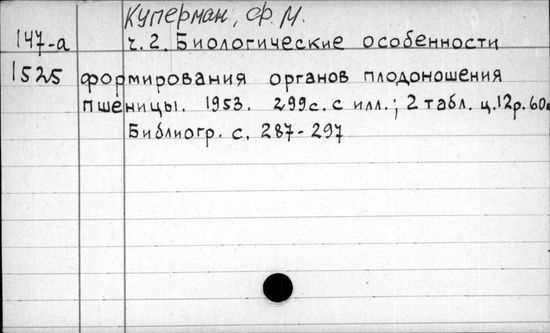 Куперман, Ф.М.
147-а ч.2. Биологические особенности
1525 формирования органов плодоношения
пшеницы. 1953. 299с. с илл.; 2 табл. ц.12р.60к
Библиогр. с. 287-297